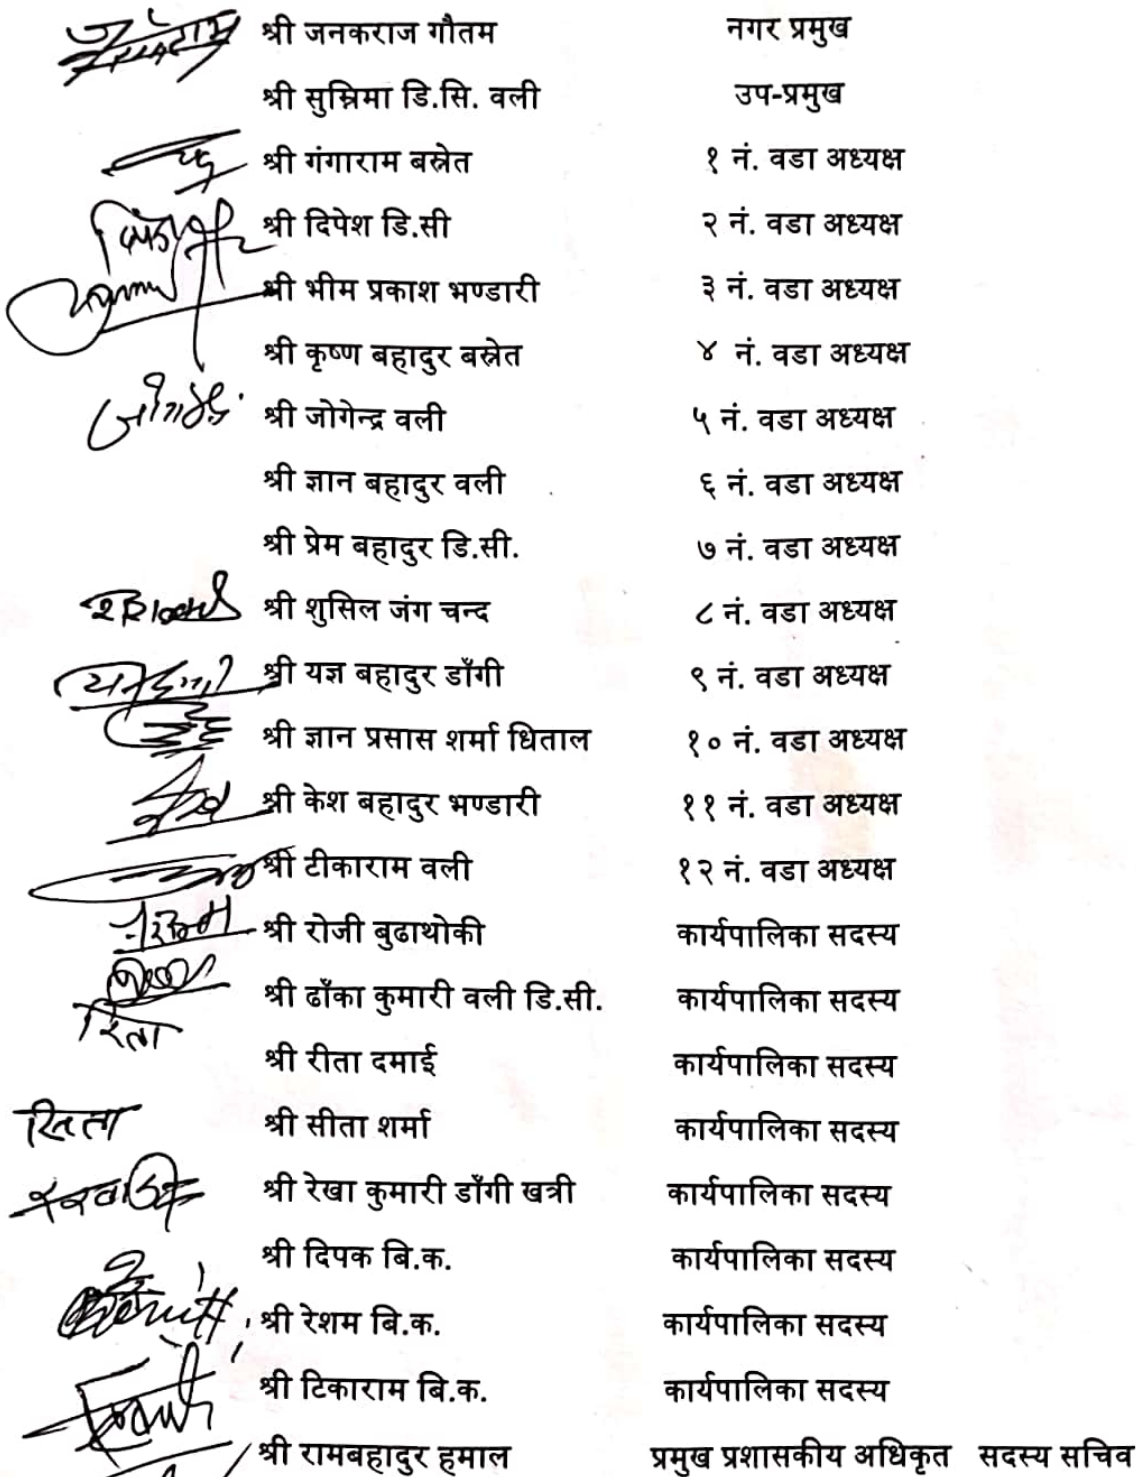 श्री जनकराज गौतम नगर प्रमुख
श्री सुस्निमा डि.सि. वली उप-प्रमुख
श्री गंगाराम बस्नेत १ नं. वडा अध्यक्ष
श्री दिपेश डि.सी २ नं. वडा अध्यक्ष
श्री भीम प्रकाश भण्डारी ३ नं. वडा अध्यक्ष
श्री कृष्ण बहादुर बस्नेत ४ नं. वडा अध्यक्ष
श्री जोगेन्द्र वली ५ नं. वडा अध्यक्ष
श्री ज्ञान बहादुर वली ६ नं. वडा अध्यक्ष
श्री प्रेम बहादुर डि.सी. ७ नं. वडा अध्यक्ष
श्री शुसिल जंग चन्द ८ नं. वडा अध्यक्ष
श्री यज्ञ बहादुर डाँगी ९ नं. वडा अध्यक्ष
श्री ज्ञान प्रसास शर्मा धिताल १० नं. वडा अध्यक्ष
श्री केश बहादुर भण्डारी ११ नं. वडा अध्यक्ष
श्री टीकाराम वली १२ नं. वडा अध्यक्ष
श्री रोजी बुढाथोकी कार्यपालिका सदस्य
श्री ढाँका कुमारी वली डि.सी. कार्यपालिका सदस्य
रिता
श्री रीता दमाई कार्यपालिका सदस्य
सिता श्री सीता शर्मा कार्यपालिका सदस्य
श्री रेखा कुमारी डाँगी खत्री कार्यपालिका सदस्य
श्री दिपक बि.क. कार्यपालिका सदस्य
श्री रेशम बि.क. कार्यपालिका सदस्य
श्री टिकाराम बि.क. कार्यपालिका सदस्य
श्री रामबहादुर हमाल प्रमुख प्रशासकीय अधिकृत सदस्य सचिव